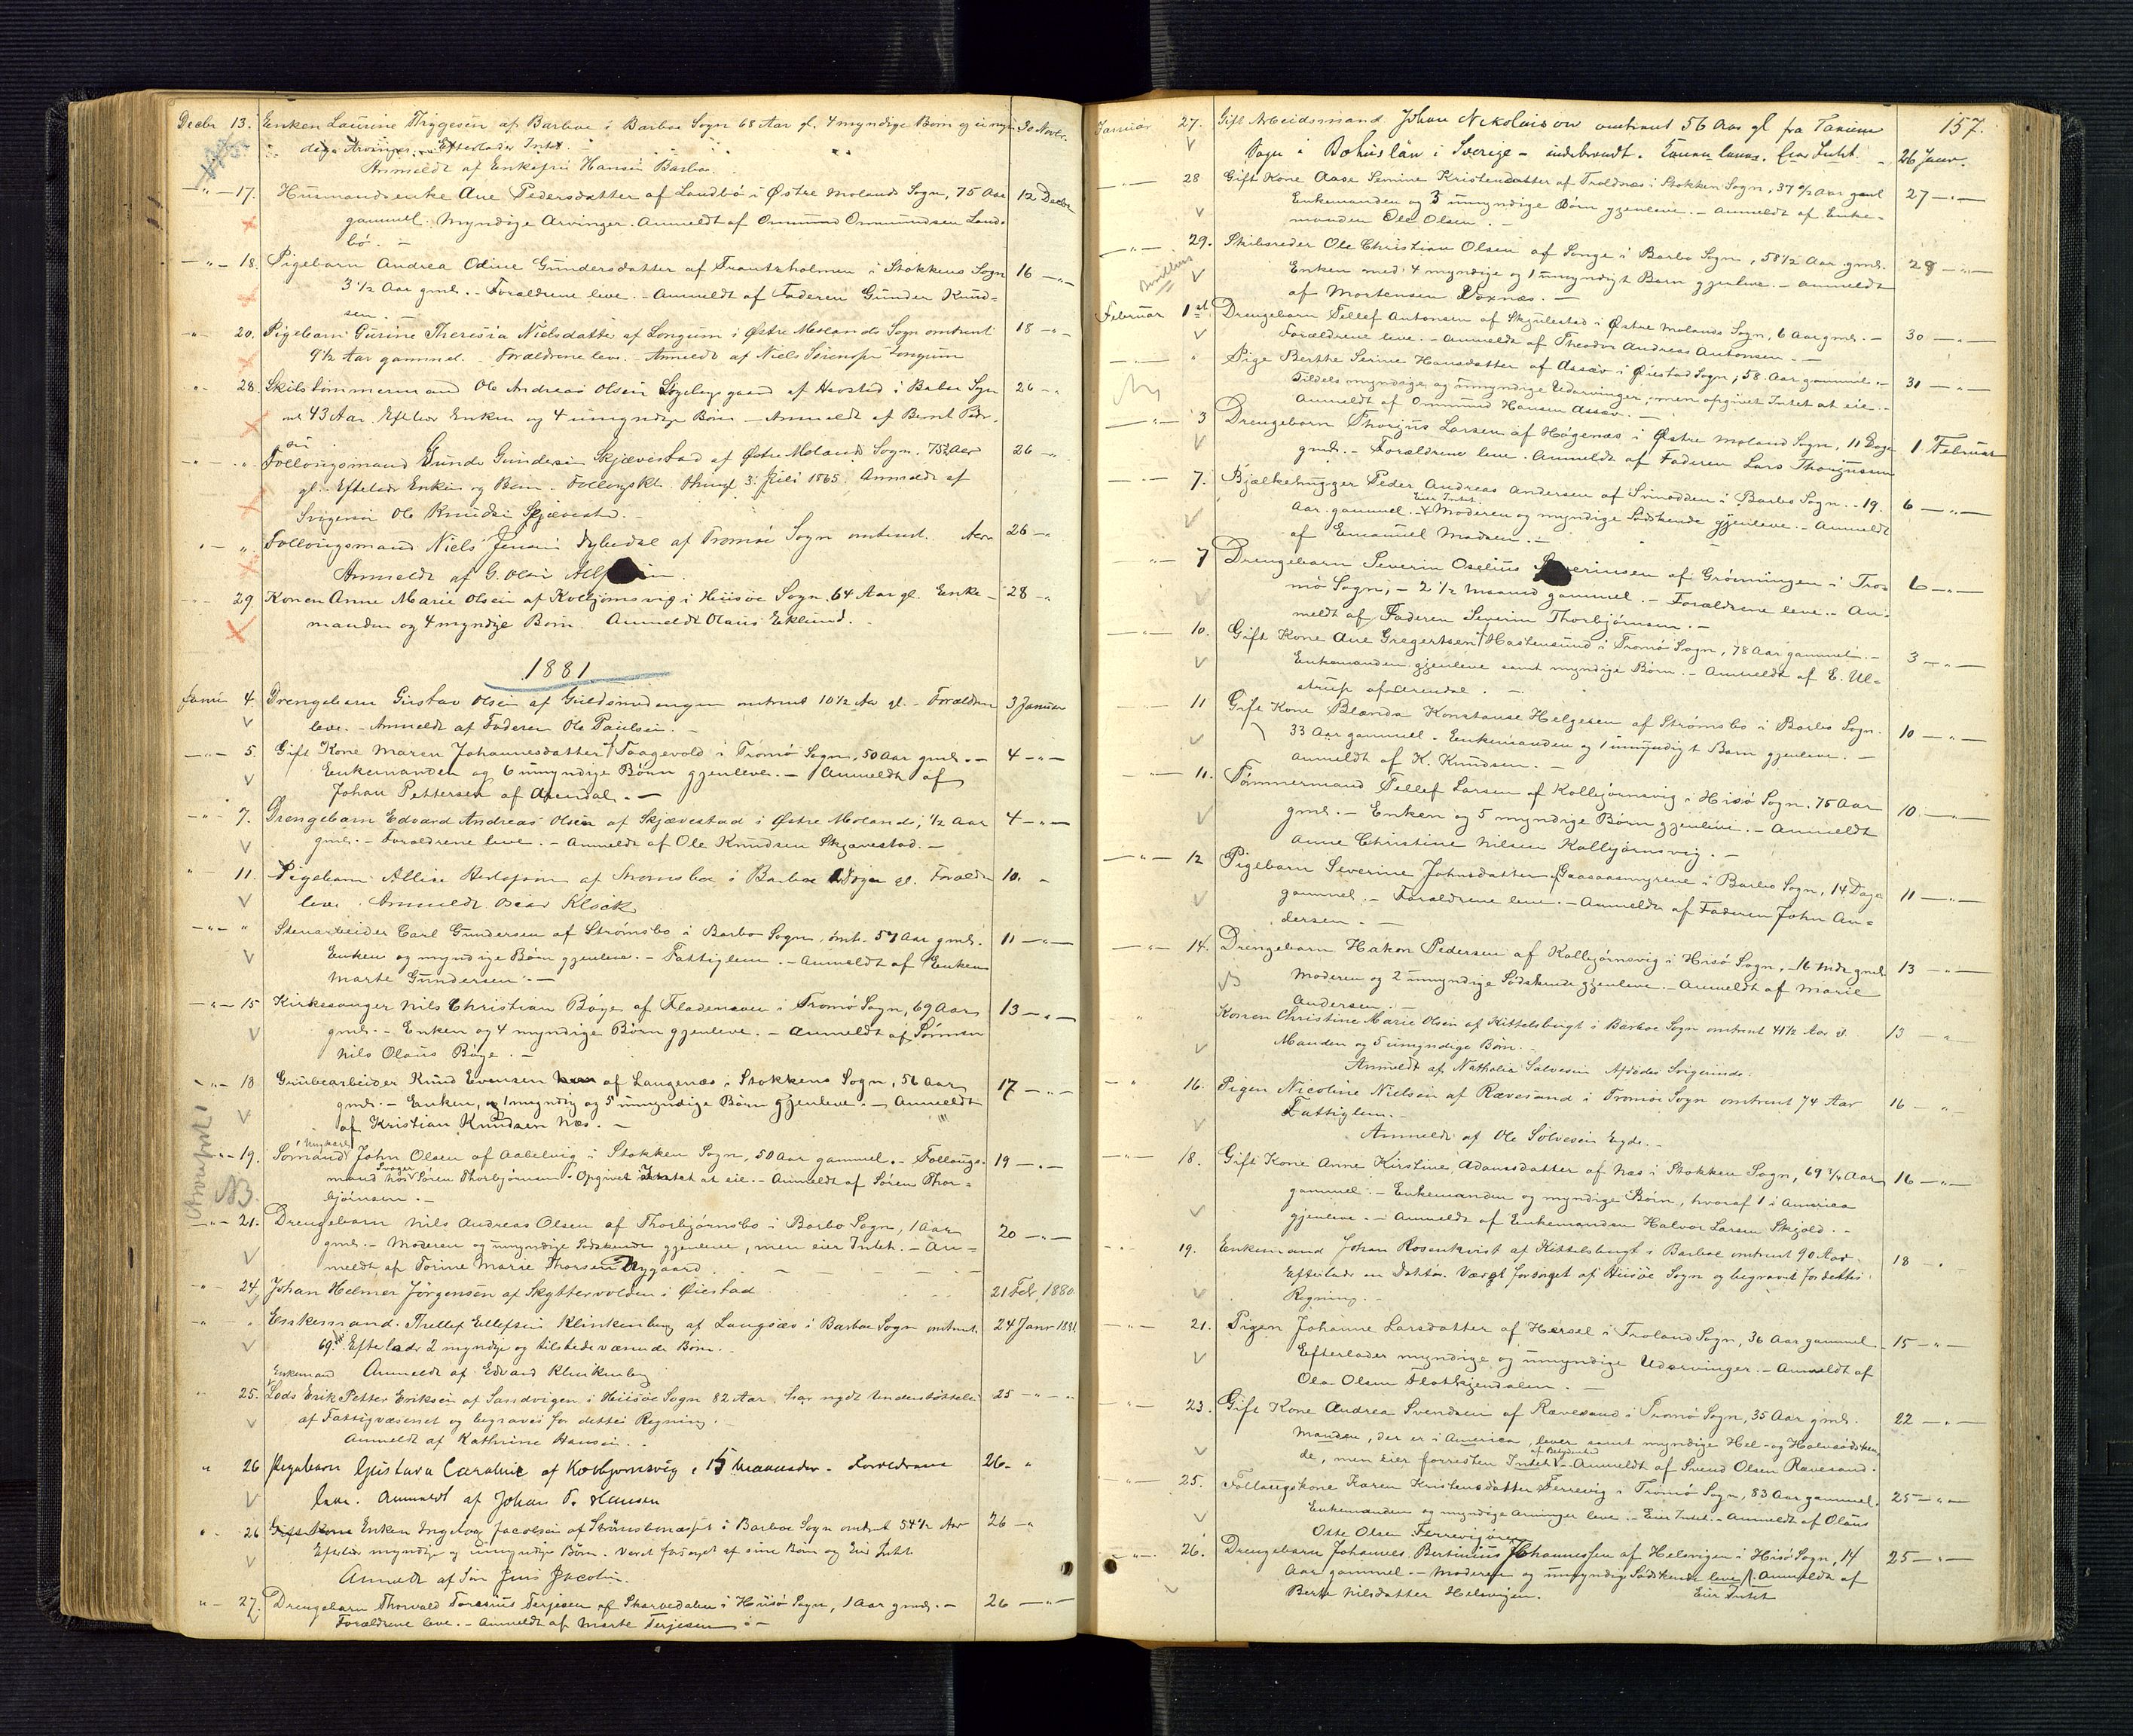 Decbr 13. Enken Laurine Thygesen af Barboe i Barboe Sogn 68 Aar gl. 4 myndige Børn og 30 Novbr.
Arvinger. Efterlader Intet.
Anmeldt af Enkefru Hansen Barboe.
-"- 17. Husmandsenke Ane Pedersdatter af Landbö i Østre Molands Sogn, 75 Aar 12 Decbr
gammel. Myndige Arvinger. Anmeldt af Ommund Ommundsen Land-
bö. -
-"- 18. Pigebarn Andrea Odine Gundersdatter af Frantzholmen i Stokkens Sogn 16 -"-
3 1/2 Aar gml. - Forældrene leve. - Anmeldt af Faderen Gunder Knud-
sen. -
-"- 20. Pigebarn Gurine Theresia Nielsdatter af Longum i Østre Molands Sogn omtrent 18 -"-
9 1/2 Aar gammel. - Forældrene leve. - Anmeldt af Niels Sørensen Longum
-"- 28. Skibstømmermand Ole Andreas Olsen af i Barbo Sogn 26 -"-
43 Aar. Efterlader Enken og 4 umyndige Børn - Anmeldt af Bernt Peder-
sen
-"- ". Føllougsmand Gunder Gundersen Skjævestad af Østre Molands Sogn. 75 1/2 Aar 26 -"-
gl. Efterlader Enken og Børn. 3. Juli 1865. Anmeldt af
Svigersøn Ole Knudsen Skjævestad. -
-"- ". Føllougsmand Niels Jensen af Tromöe Sogn omtrent Aar 26 -"-
Anmeldt af G. Olsen
29. Konen Anne Marie Olsen af Kolbjørnsvig i Hiisöe Sogn. 64 Aar gl. Enke- 28 -"-
manden og 4 myndige Børn. Anmeldt Olaus Eklund.
1881.
Januar 4. Drengebarn Gustav Olsen af Guldsmedengen omtrent 10 1/2 Aar gl. - Forældrene 3 Januar
leve. - Anmeldt af Faderen Ole Paulsen. -
-"- 5. Gift Kone Maren Johannesdatter af Faagevold i Tromö Sogn, 50 Aar gml. - 4 -"-
Enkemanden og 6 umyndige Börn gjenlever. - Anmeldt af
Johan Pettersen af Arendal. -
-"- 7. Drengebarn Edvard Andreas Olsen af Skjævestad i Østre Moland, 1/2 Aar 4 -"-
gml. - Forældrene leve. - Anmeldt af Ole Knudsen Skjævestad. -
" 11. Pigebarn Allise af Strømsboe i Barboe Dage gl. Forældr. 10. -
leve. Anmeldt Klock
-"- " Stenarbeider Carl Gundersen af Strømsbo i Barbo Sogn, omt. 57 Aar gml. 11 -"-
Enken og myndige Børn gjenleve. - Fattiglem. - Anmeldt af Enken
Marte Gundersen. -
-"- 15 Kirkesanger Nils Christian Böye af Fladensun i Tromö Sogn, 69 Aar 13 -"-
gml. - Enken og 4 myndige Börn gjenleve. - Anmeldt af Sönnen
Nils Olaus Böye. -
-"- 18 Grubearbeider Knud Evensen af Langenæs i Stokkens Sogn, 56 Aar 17 -"-
gml. - Enken, 1 myndig og 5 umyndige Börn gjenleve. - Anmeldt
af Kristian Knudsen Næs. -
-"- 19. Sömand Ungkarl John Olsen af Aabelvig i Stokken Sogn, 50 Aar gammel. - Föllougs- 19 -"-
mand hos Svager Sören Thorbjörnsen. Opgivet Intet at eie. - Anmeldt af Sören Thor-
björnsen. -
NB.
-"- 21. Drengebarn Nils Andreas Olsen af Thorbjörnsbo i Barbo Sogn, 1 Aar 20 -"-
gml. - Moderen og umyndige Södskende gjenleve, men eier Intet. - An-
meldt af Torine Marie Thorsen Nygaard.
" 24. Johan Helmer Jörgensen af Skyttervolden i Öiestad 21 Febr. 1880.
" " Enkemand. Thellef Ellefsen Klinkenberg af Langsæv i Barboe Sogn omtrent 24 Janr 1881.
69. Aar Efterlader 2 myndige og tilstedeværende Børn. -
Anmeldt af Edvard Klinkenberg
" 25. Enkemand Lods Erik Petter Eriksen af Sandvigen i Hiisöe Sogn 82 Aar, har nydt Understøttelse 25 -"-
af Fattigvæsenet og begraves for dettes Regning.
Anmeldt af Kathrine Hansen. -
" 26 Pigebarn Gustava Caroline af Kolbjørnsvig, 15 Maaneder. Forældrene 26 - "
leve. Anmeldt af Johan T. Hansen
" 26 Gift Kone Enken Ingeborg Jacobsen af Strømsbonæsset i Barboe Sogn omtrent 54 1/2 Aar 26 -"
Efterlader myndige og umyndige Børn. Været forsørget af sine Børn og Eier Intet
Anmeldt af Søn Jens Jacobsen.
" 27. Drengebarn Thorvald Tomsinus Terjesen af Skarvedalen i Hisö Sogn, 1 Aar gml. - 26 -"-
Forældrene leve. - Anmeldt af Marte Terjesen. -
157.
Januar 27. Gift Arbeidsmand Johan Nikolaison omtrent 56 Aar gl fra Tanum
Sogn i Bohuslän i Sverige - indebrændt. 26 Janr.
-"- 28 Gift Kone Aase Semine Kristensdatter af Troldnæs i Stokken Sogn, 37 Aar gaml 27 -"-
Enkemanden og 3 umyndige Børn gjenleve. - Anmeldt af Enke-
manden Ole Olsen. -
-"- 29. Skibsreder Ole Christian Olsen af Songe i Barbo Sogn, 58 1/2 Aar gml. 28 -"-
Enken med 4 myndige og 1 umyndigt Barn gjenleve. - Anmeldt
af Mortensen Voxnæs. -
Februar 1st Drengebarn Tellef Antonsen af Skjulestad i Østre Molands Sogn, 6 Aar gml. - 30 -"-
Forældrene leve. - Anmeldt af Theodor Andreas Antonsen. -
-"- " Pige Berthe Serine Hansdatter af Assæv i Öiestad Sogn, 58 Aar gammel. - 31 -"-
Tildels myndige og umyndige Udarvinger, men opgivet Intet at eie. -
Anmeldt af Ommund Hansen Assæv. -
-"- 3 Drengebarn Thorjus Larsen af Högenæs i Østre Moland Sogn, 11 Dage 1 Februar
gml. - Forældrene leve. Anmeldt af Faderen Lars Thorjussen
-"- 7. Bjælkehugger Peder Andreas Andersen af Svinodden i Barbo Sogn. - 19. 6 -"-
Eier Intet.
Aar gammel. - Moderen og myndige Södskende gjenleve. - Anmeldt
af Emanuel Madsen. -
-"- 7 Drengebarn Severin Oselius Severinsen af Grönningen i Tro- 6 -"-
mö Sogn, - 2 1/2 Maaned gammel. - Forældrene leve. - An-
meldt af Faderen Severin Thorbjörnsen. -
-"- 10. Gift Kone Ane Gregertsen af Hastensund i Tromö Sogn, 78 Aar gammel. - 3 -"-
Enkemanden gjenleve samt myndige Börn. - Anmeldt af E. Ul-
strup af Arendal. -
11 Gift Kone Blanda Konstanse Helgesen af Strömsbo i Barbo Sogn. 10 -"-
33 Aar gammel. Enkemanden og 1 umyndigt Barn gjenleve. -
Anmeldt af K. Knudsen. -
-"- 11. Tömmermand Tellef Larsen af Kolbjörnsvig i Hisö Sogn, 75 Aar 10. -"-
gml. - Enken og 5 myndige Börn gjenleve. - Anmeldt
Anne Christine Nilsen Kolbjörnsvig. -
-"- 12 Pigebarn Severine Johnsdatter af Gaasaasmyrene i Barbo Sogn, 14 Dage 11 -"-
gammel. - Forældrene leve. - Anmeldt af Faderen John An-
dersen. -
-"- 14. Drengebarn Hakon Pedersen af Kolbjörnsvig i Hisö Sogn, 16 Mdr gml 13 -"-
Moderen og 2 umyndige Södskende gjenleve. - Anmeldt af Marie
Andersen. -
" Konen Christine Marie Olsen af Kittelsbugt i Barboe Sogn omtrent 41 1/2 Aar gl. 13 "
Manden og 5 umyndige Børn. -
Anmeldt af Nathalia Salvesen Afdødes Svigerinde.
-" 16. Pigen Nicoline Nielsen af Rævesand i Tromöe Sogn omtrent 74 Aar 16 - "
Fattiglem. -
Anmeldt af Ole Solvesen Eyde. -
-"- 18. Gift Kone Anne Kirstine Adamsdatter af Næs i Stokken Sogn, 69 3/4 Aar 16 -"-
gammel. - Enkemanden og myndige Börn, hvoraf 1 i America
gjenleve. - Anmeldt af Enkemanden Halvor Larsen Skjold. -
19. Enkemand Johan Rosenkvist af Kittelsbugt i Barboe omtrent 90 Aar. 18 - "
Efterlader en Datter. Været forsørget af Hiisöe Sogn og begravet for dettes
Regning. -
-"- 21. Pigen Johanne Larsdatter af Hersel i Froland Sogn, 36 Aar gammel 15 -"
Efterlader myndige og umyndige Udarvinger. - Anmeldt af
Ole Olsen. -
-"- 23. Gift Kone Andrea Svendsen af Rævesand i Tromö Sogn, 35 Aar gml. 22 -"-
Manden, der er i America, lever samt myndige Hel- og Halvsödsken-
de, men eier forresten Intet af Betydenhed. - Anmeldt af Svend Olsen Rævesand.
-"- 25. Föllougskone Karen Kristensdatter Færrevig i Tromö Sogn, 83 Aar gammel. 25 -"-
Enkemanden og myndige Arvinger leve. - Eier Intet. - Anmeldt af Olaus
Otte Olsen Færrevigören
-"- 26. Drengebarn Johannes Bertinius Johannessen af Helsvigen i Hisö Sogn, 14 25 -"-
Aar gammel - Moderen og umyndig Södskende leve. Anmeldt af
Berte Nilsdatter Helsvigen. Eier Intet